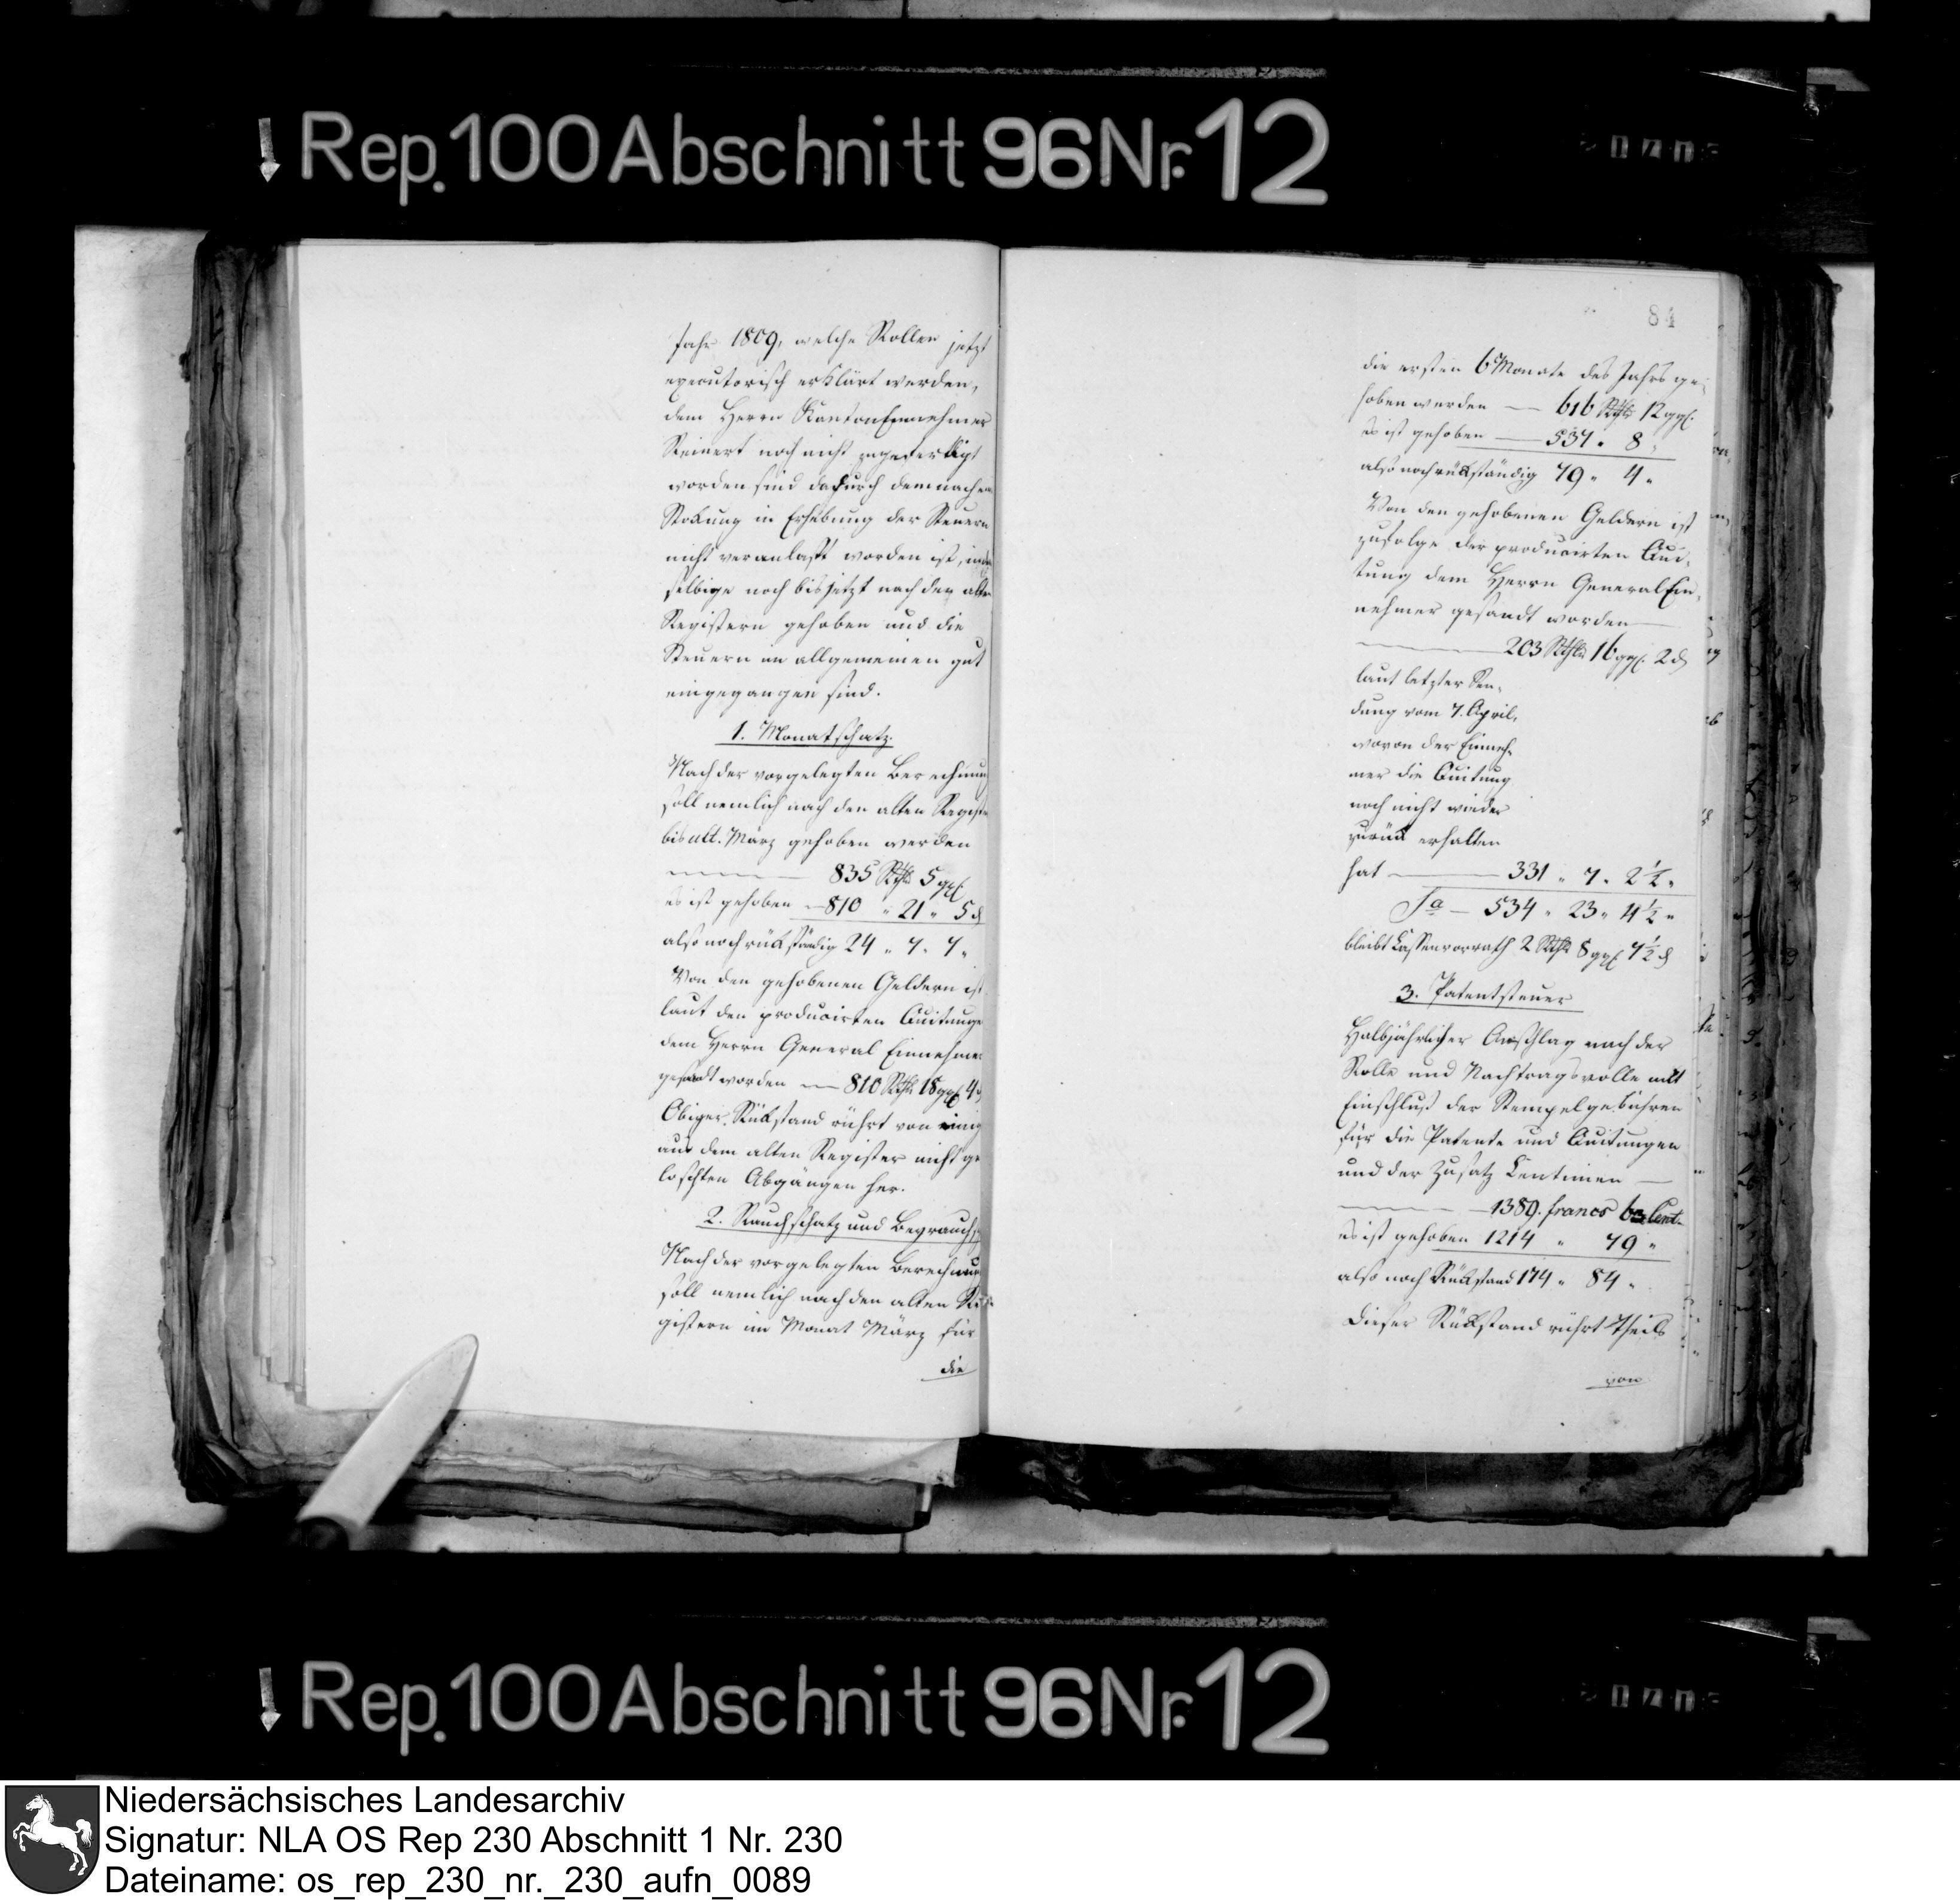 Rep. 100 Abschnitt 96 Nr. 12
Jahr 1809, welche Rollen jetzt
executorisch erklärt werden,
dem Herrn KantonEinnehmer
Reinert noch nicht zugefertigt
worden sind dadurch demnach
Stokung in Erhebung der Steuern
nicht veranlaßt worden ist, indem
selbige noch bis jetzt nach den alten
Registern gehoben und die
Steuern im allgemeinen gut
eingegangen sind.
1. Monatschatz.
Nach der vorgelegten Berechnung
soll nemlich nach den alten Registern
bis ult. März gehoben werden
835 Rthlr 5 ggl.
es ist gehoben — 810 " 21 " 5 d
also noch rükständig 24 " 7 " 7 "
Von den gehobenen Geldern ist
laut den producirten Quitungen
dem Herrn General Einnehmer
gesandt worden — 810 Rthlr 18 ggl 4 d
Obiger Rükstand rührt von einig
aus dem alten Register nicht ge
loschten Abgängen her.
2. Rauchschatz und
Nach der vorgelegten Berechnung
soll nemlich nach den alten Re
gistern im Monat März für
die
84
die ersten 6 Monate des Jahrs ge-
hoben werden — 616 Rthlr 12 ggl.
es ist gehoben — 537 " 8 "
also noch rükständig 79 " 4 "
Von den gehobenen Geldern ist
zufolge der producirten Qui-
tung dem Herrn GeneralEin-
nehmer gesandt worden —
203 Rthlr 16 ggl. 2 d
laut letzter Sen-
dung vom 7. April,
wovon der Einneh-
mer die Quitung
noch nicht wieder
zurük erhalten
hat — 331 " 7 " 2½ "
Sa — 534 " 23 " 4½ "
bleibt Kassenvorrath 2 Rthlr 8 ggl 7½ d
3. Patentsteuer
Halbjährlicher Anschlag nach der
Rolle und Nachtragsrolle mit
Einschluß der Stempelgebühren
für die Patente und Quitungen
und der Zusatz Centimen —
1389. francs 63 Cent.
es ist gehoben 1214 " 79 "
also noch Rükstand 174 " 84 "
Dieser Rükstand rührt theils
von
Rep. 100 Abschnitt 96 Nr. 12
Niedersächsisches Landesarchiv
Signatur: NLA OS Rep 230 Abschnitt 1 Nr. 230
Dateiname: os_rep_230_nr._230_aufn_0089